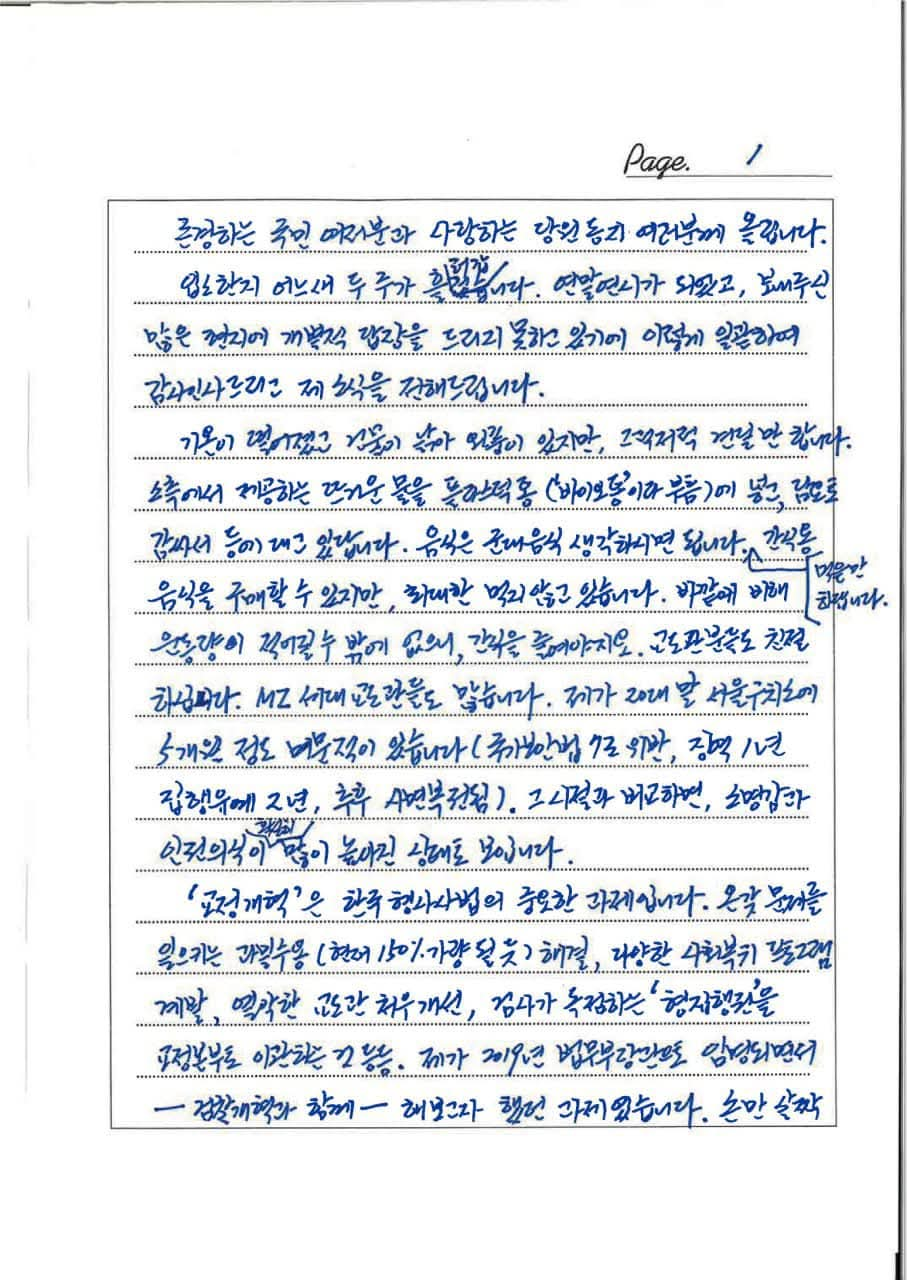 Page. 1
존경하는 국민 여러분과 사랑하는 당원 동지 여러분께 올립니다.
입소한지 어느새 두 주가 흘러갔습니다. 연말연시가 되었고, 보내주신
많은 편지에 개별적 답장을 드리지 못하고 있기에 이렇게 일괄하여
감사인사드리고 제 소식을 전해드립니다.
기온이 떨어졌고 건물이 낡아 외풍이 있지만, 그럭저럭 견딜 만 합니다.
소측에서 제공하는 뜨거운 물을 플라스틱 통 ('바이오통'이라 부름)에 넣고, 담요로
감싸서 등에 대고 있답니다. 음식은 군대음식 생각하시면 됩니다. 먹을만 하답니다. 간식용
음식을 구매할 수 있지만, 최대한 먹지 않고 있습니다. 바깥에 비해
운동량이 적어질 수 밖에 없으니, 간식을 줄여야지요. 교도관분들도 친절
하십니다. MZ 세대 교도관들도 많습니다. 제가 20대 말 서울구치소에
5개월 정도 머문적이 있습니다 (국가보안법 7조 위반, 징역 1년
집행유예 2년, 추후 사면복권됨). 그 시절과 비교하면, 소명감과
인권의식이 확실히 많이 높아진 상태로 보입니다.
'교정개혁'은 한국 형사사법의 중요한 과제입니다. 온갖 문제를
일으키는 과밀수용 (현재 150% 가량 될 듯) 해결, 다양한 사회복귀 프로그램
계발, 열악한 교도관 처우개선, 검사가 독점하는 '형집행권'을
교정본부로 이관하는 것 등등. 제가 2019년 법무부장관으로 임명되면서
― 검찰개혁과 함께 ― 해보고자 했던 과제였습니다. 손만 살짝